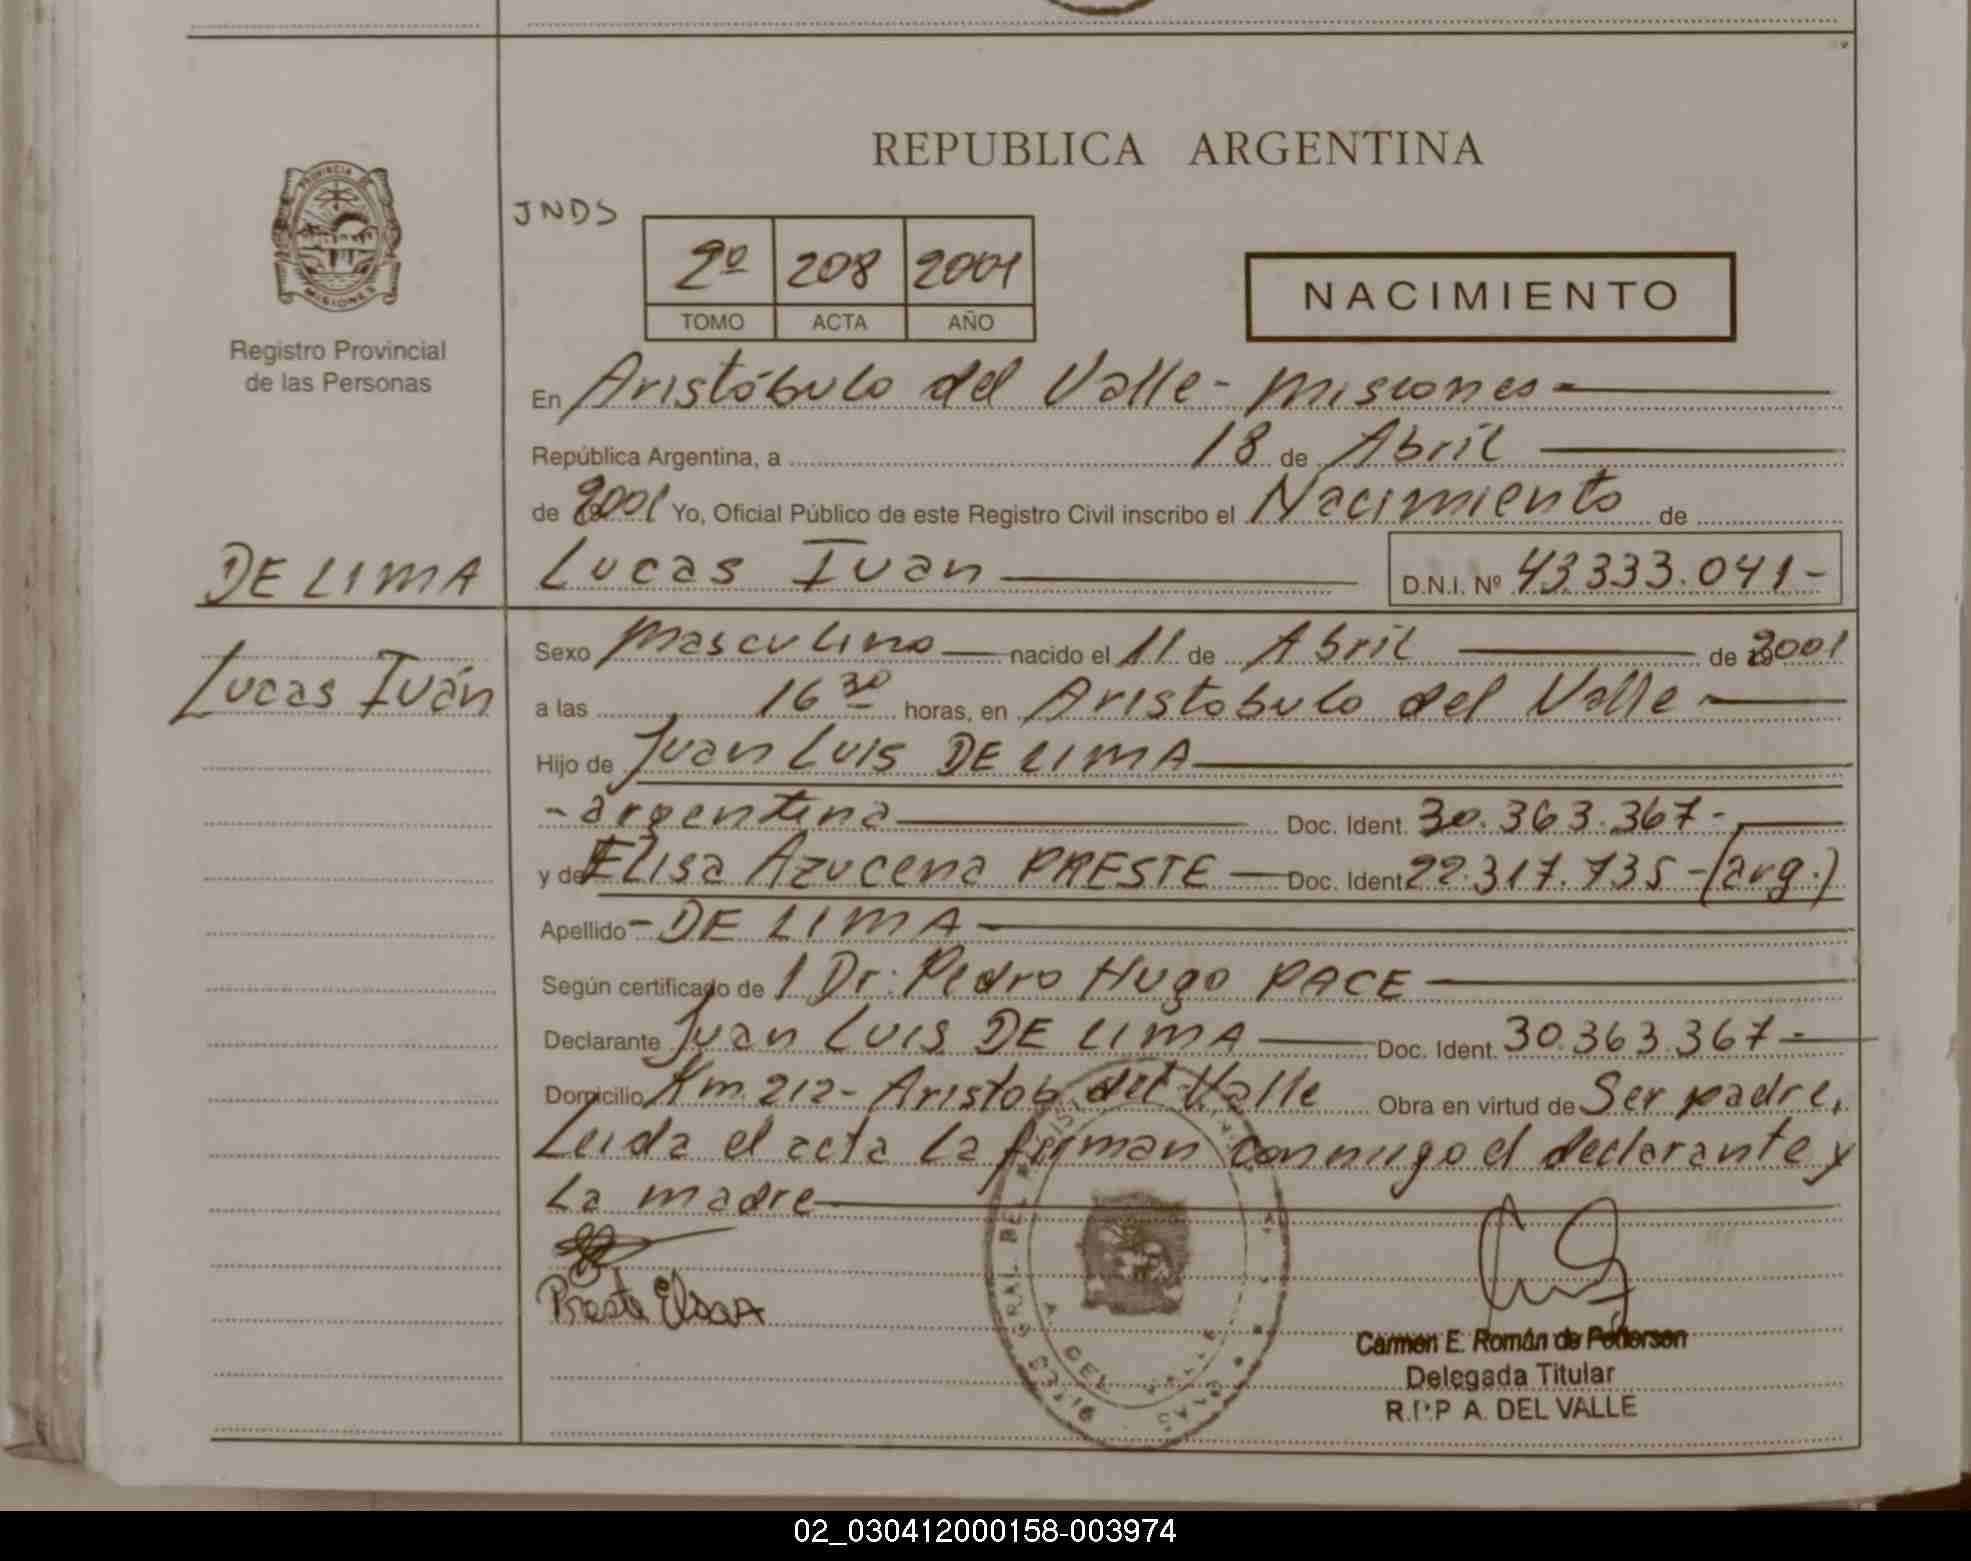 REPUBLICA ARGENTINA
PROVINCIA DE
MISIONES
Registro Provincial
de las Personas
JNDS
2º 208 2001
TOMO ACTA AÑO
NACIMIENTO
En Aristóbulo del Valle - Misiones
República Argentina, a 18 de Abril
de 2001 Yo, Oficial Público de este Registro Civil inscribo el Nacimiento de
DE LIMA
Lucas Ivan D.N.I. Nº 43.333.041-
Lucas Iván
Sexo Masculino nacido el 11 de Abril de 2001
a las 16 30 horas, en Aristobulo del Valle
Hijo de Juan Luis DE LIMA
- argentina Doc. Ident. 30.363.367-
y de Elisa Azucena PRESTE Doc. Ident 22.317.735-(arg.)
Apellido - DE LIMA
Según certificado de l Dr. Pedro Hugo PACE
Declarante Juan Luis DE LIMA Doc. Ident. 30.363.367-
Domicilio Km 212- Aristob del Valle Obra en virtud de Ser padre,
Leida el acta la firman conmigo el declarante y
La madre
Preste ElisA
Carmen E. Román de Pedersen
Delegada Titular
R.P.P A. DEL VALLE
02_030412000158-003974